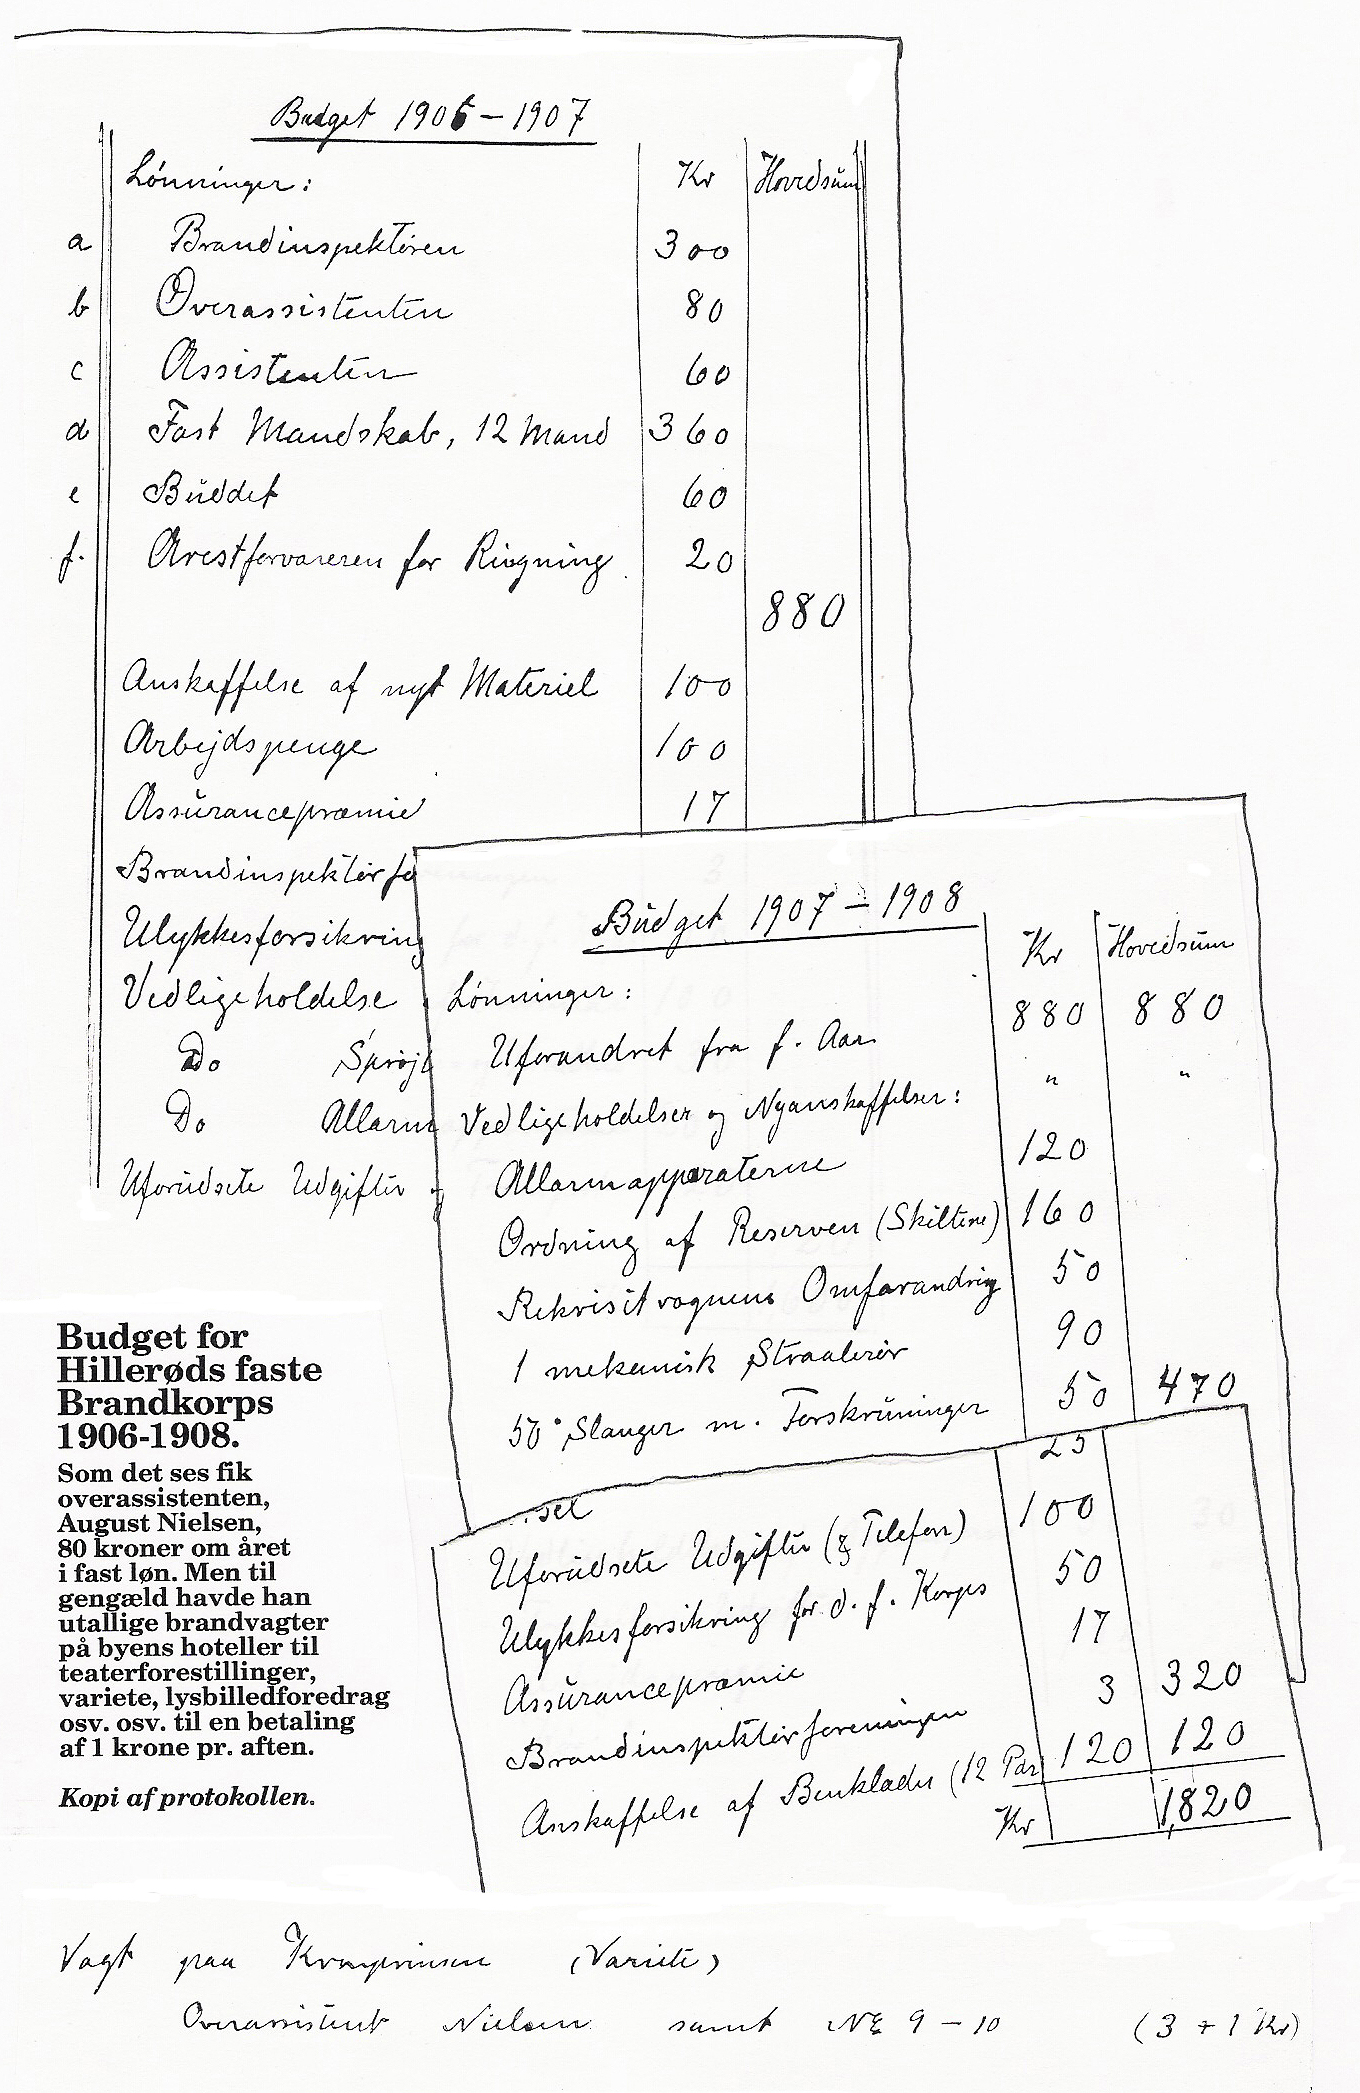 Budget 1906 – 1907
Lønninger: Kr Hovedsum
a Brandinspektøren 300
b Overassistenten 80
c Assistenten 60
d Fast Mandskab, 12 Mand 360
e Budet 60
f. Arestforvareren for Ringning 20
880
Anskaffelse af nyt Materiel 100
Arbejdspenge 100
Assurancepræmie 17
Brandinspektørfo
Ulykkesforsikring
Vedligeholdelse
Do Sprøjt
Do Allarm
Uforudsete Udgifter
Budget 1907 – 1908
Kr Hovedsum
Lønninger: 880 880
Uforandret fra f. Aar. " "
Vedligeholdelser og Nyanskaffelser:
Allarmapparaterne 120
Ordning af Reserven (Skiltene) 160
Rekvisitvognens Omforandring 50
1 mekanisk Straalerør 90
50' Slanger m. Forskruninger 50 470
25
Uforudsete Udgifter (& Telefon) 100
Ulykkesforsikring for d. f. Korps 50
Assurancepræmie 17
Brandinspektørforeningen 3 320
Anskaffelse af Benklæder (12 Par 120 120
Kr 1,820
Budget for
Hillerøds faste
Brandkorps
1906-1908.
Som det ses fik
overassistenten,
August Nielsen,
80 kroner om året
i fast løn. Men til
gengæld havde han
utallige brandvagter
på byens hoteller til
teaterforestillinger,
variete, lysbilledforedrag
osv. osv. til en betaling
af 1 krone pr. aften.
Kopi af protokollen.
Vagt paa Kronprinsen (Variete)
Overassistent Nielsen samt No 9 – 10 (3 + 1 Kr)